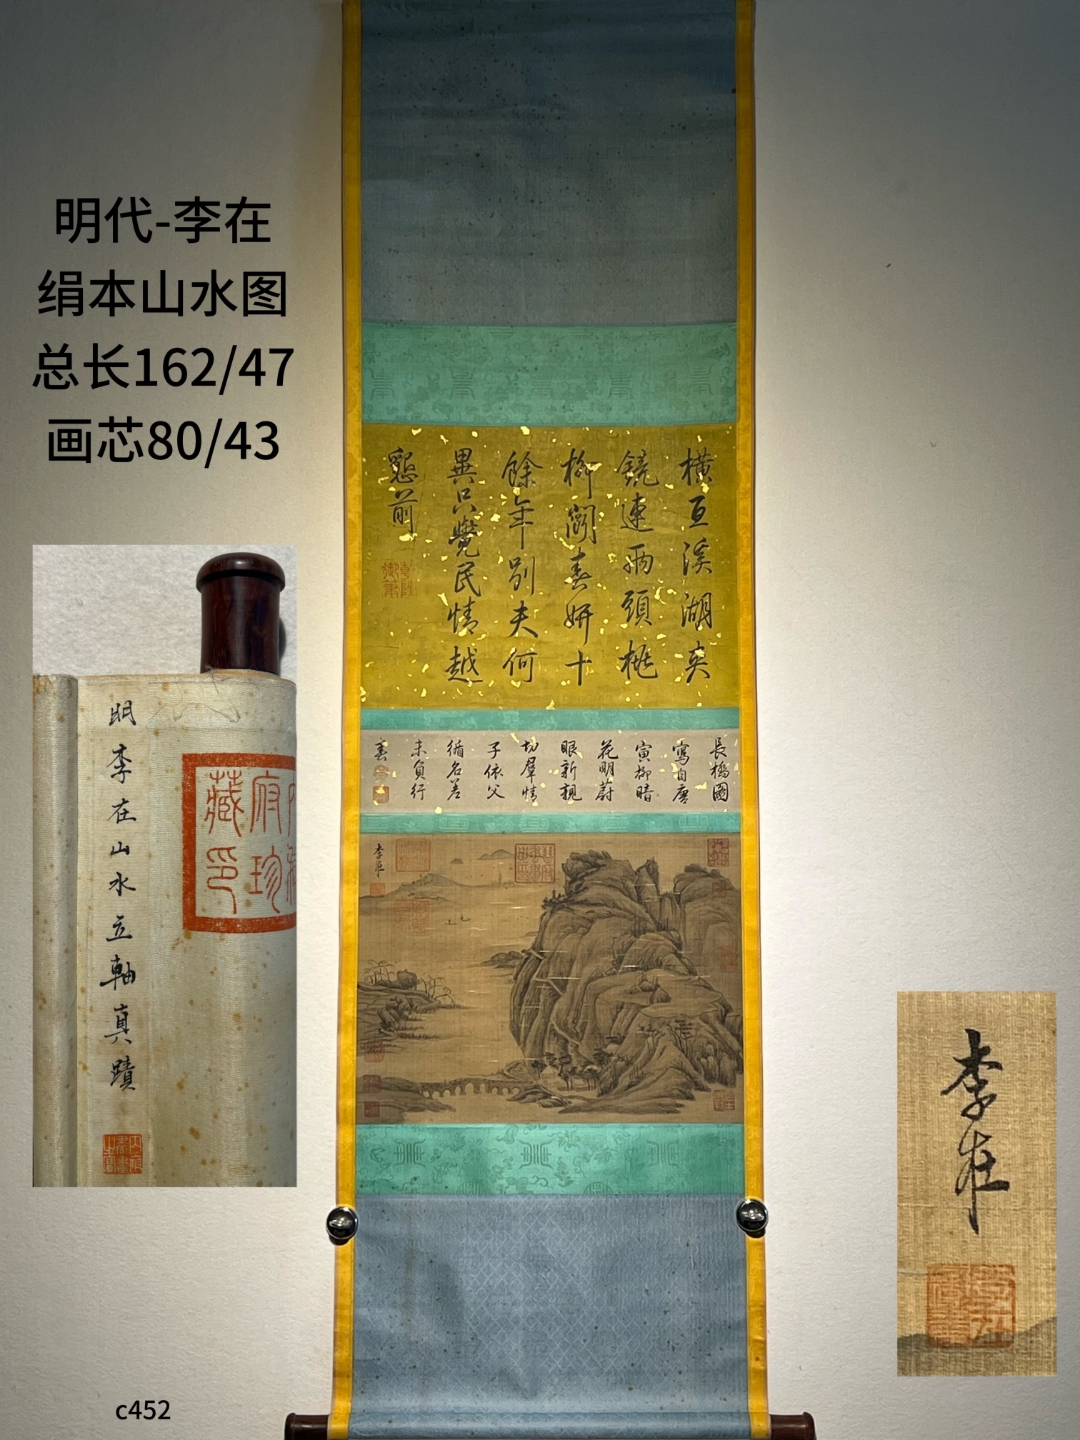 明代-李在
绢本山水图
总长162/47
画芯80/43
橫亘溪湖奕
鏡連兩頭桃
柳闹春妍十
餘年別夫何
異只覺民情越
懇前
長橋圖
寫自唐
寅柳暗
花明蔚
眼新親
切羣情
子依父
循名差
未負行
春
李在
明李在山水立軸真蹟
府珍
藏印
李在
c452